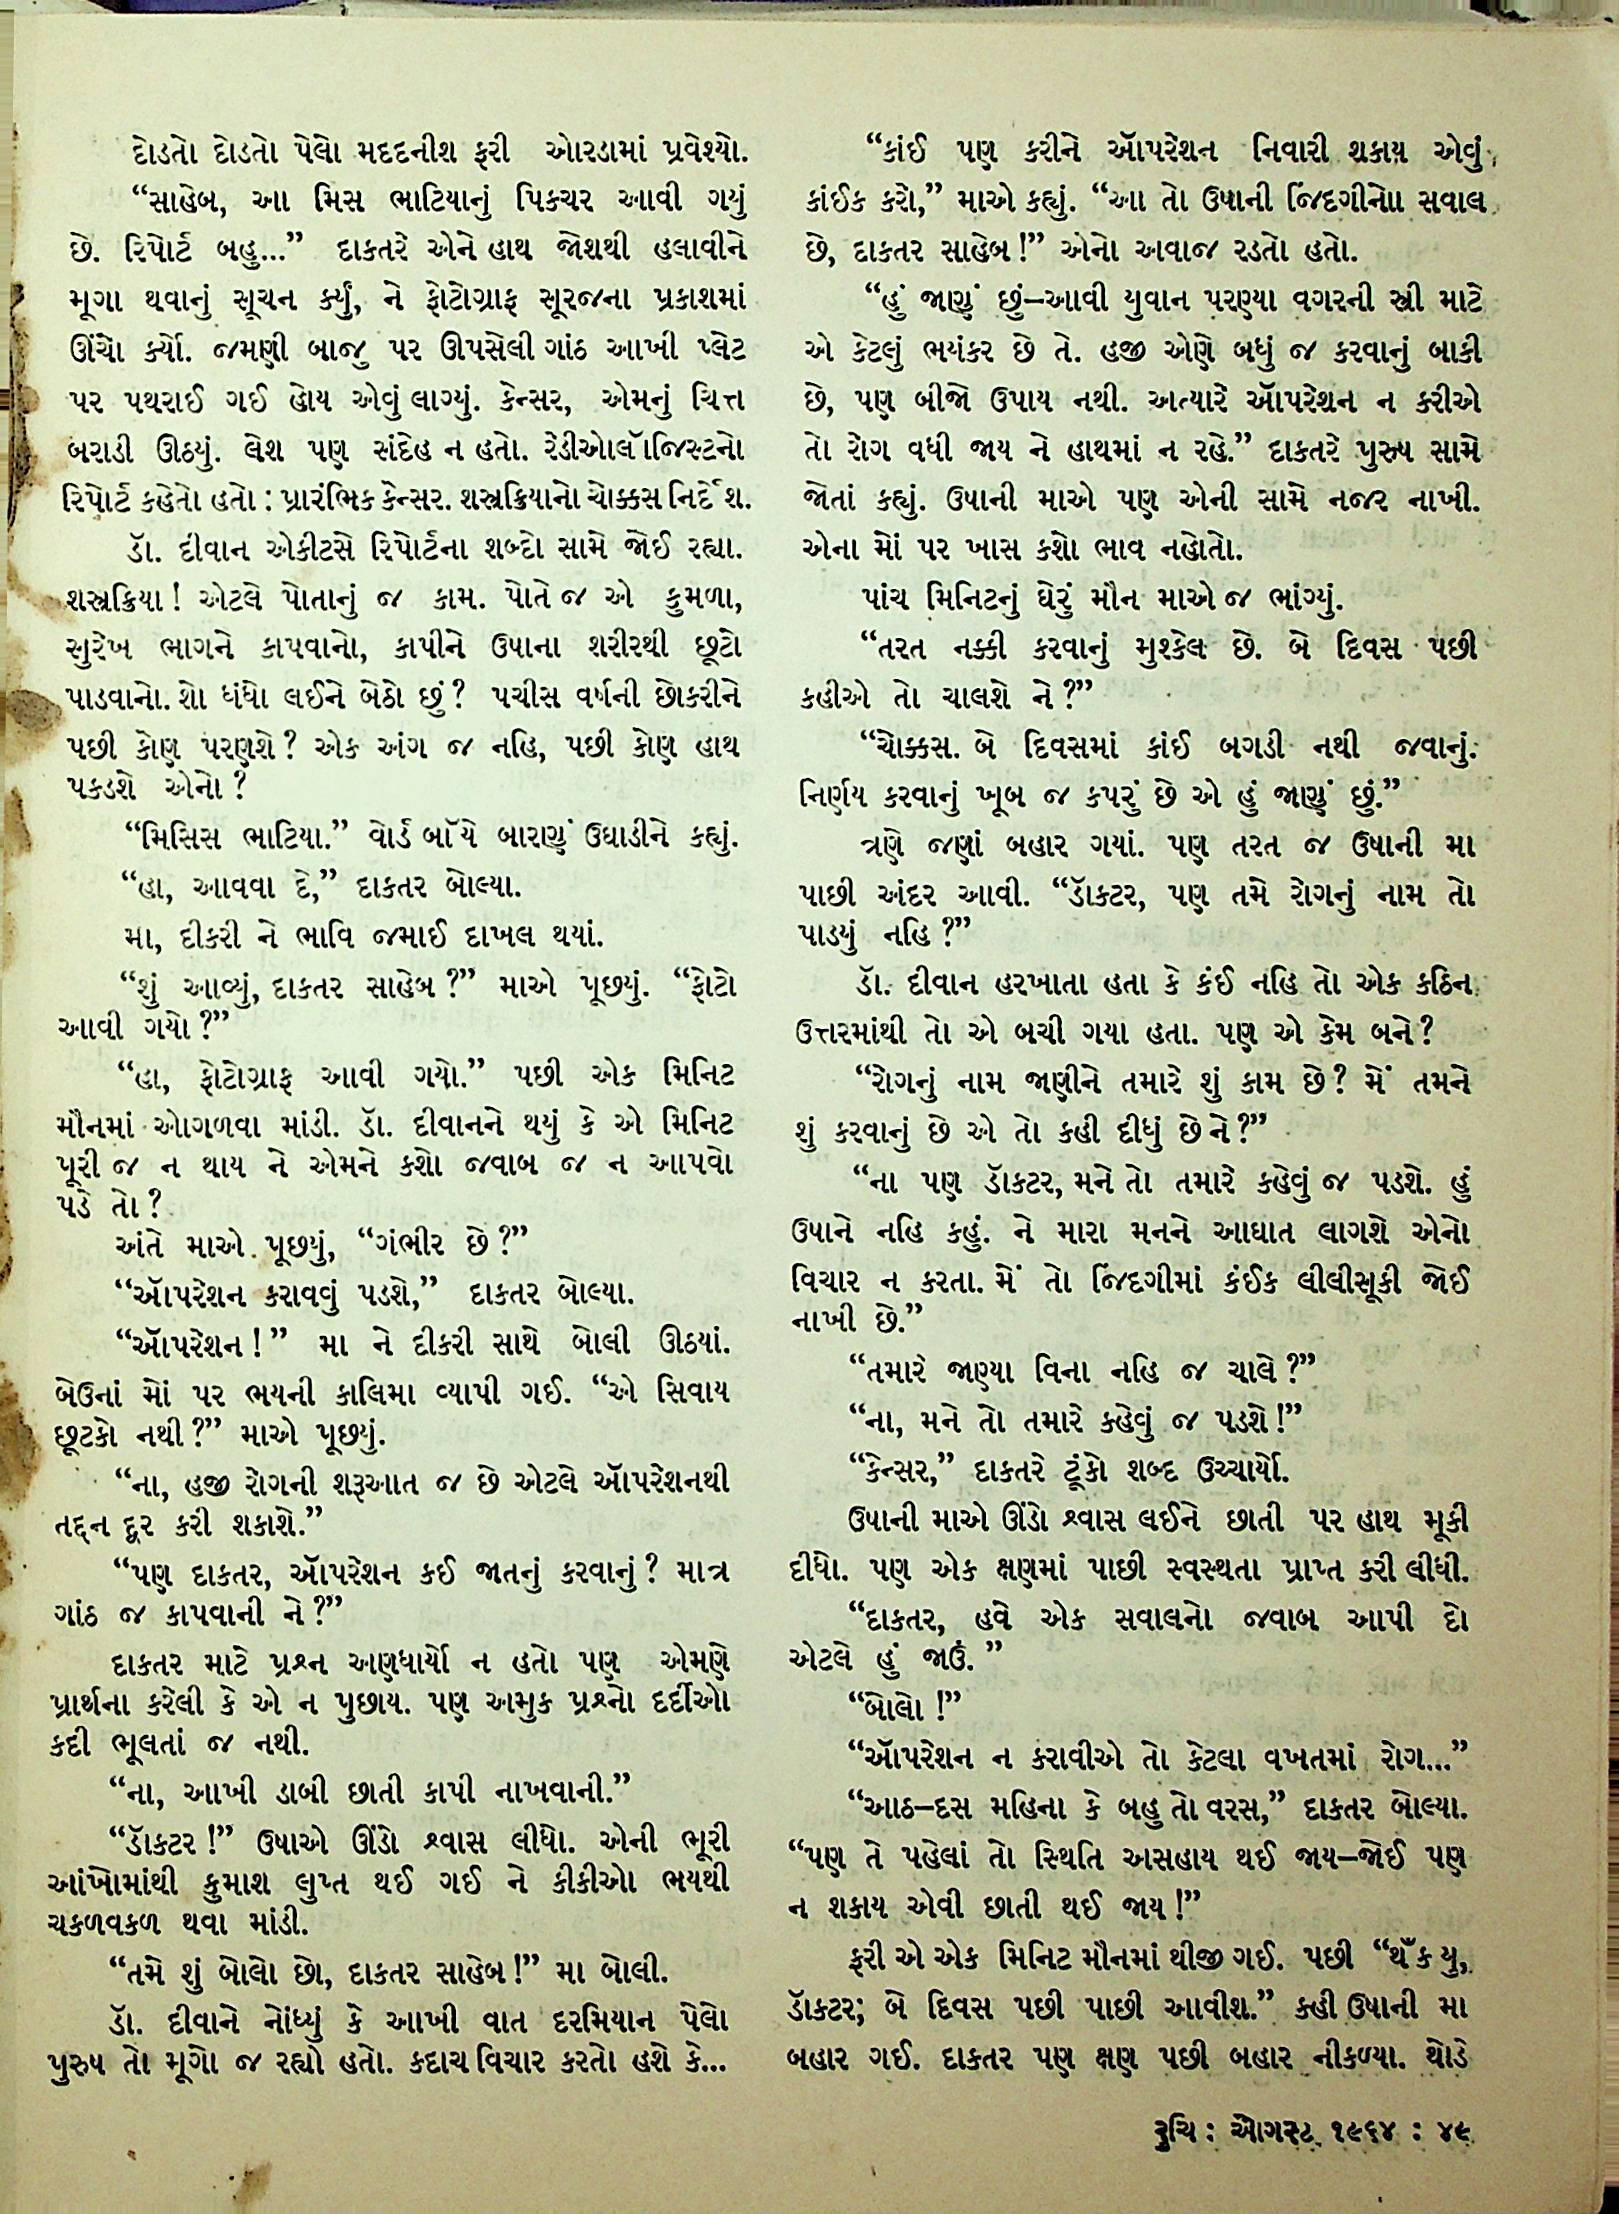 દોડતો દોડતો પેલો મદદનીશ ફરી ઓરડામાં પ્રવેશ્યો.
“સાહેબ, આ મિસ ભાટિયાનું પિક્ચર આવી ગયું
છે. રિપોર્ટ બહુ...” દાક્તરે એને હાથ જોશથી હલાવીને
મૂગા થવાનું સૂચન કર્યું, ને ફોટોગ્રાફ સૂરજના પ્રકાશમાં
ઊંચો કર્યો. જમણી બાજુ પર ઊપસેલી ગાંઠ આખી પ્લેટ
પર પથરાઈ ગઈ હોય એવું લાગ્યું. કેન્સર, એમનું ચિત્ત
બરાડી ઊઠયું. લેશ પણ સંદેહ ન હતો. રેડીઓલૉજિસ્ટનો
રિપોર્ટ કહેતો હતો : પ્રારંભિક કેન્સર. શસ્ત્રક્રિયાનો ચોક્કસ નિર્દેશ.
ડૉ. દીવાન એકીટસે રિપોર્ટના શબ્દો સામે જોઈ રહ્યા.
શસ્ત્રક્રિયા! એટલે પોતાનું જ કામ. પોતે જ એ કુમળા,
સુરેખ ભાગને કાપવાનો, કાપીને ઉષાના શરીરથી છૂટો
પાડવાનો. શો ધંધો લઈને બેઠો છું? પચીસ વર્ષની છોકરીને
પછી કોણ પરણશે? એક અંગ જ નહિ, પછી કોણ હાથ
પકડશે એનો?
“મિસિસ ભાટિયા.” વોર્ડ બૉયે બારણું ઉઘાડીને કહ્યું.
“હા, આવવા દે,” દાક્તર બોલ્યા.
મા, દીકરી ને ભાવિ જમાઈ દાખલ થયાં.
“શું આવ્યું, દાક્તર સાહેબ?” માએ પૂછયું. “ફોટો
આવી ગયો?”
“હા, ફોટોગ્રાફ આવી ગયો.” પછી એક મિનિટ
મૌનમાં ઓગળવા માંડી. ડૉ. દીવાનને થયું કે એ મિનિટ
પૂરી જ ન થાય ને એમને કશો જવાબ જ ન આપવો
પડે તો?
અંતે માએ પૂછયું, “ગંભીર છે?”
“ઑપરેશન કરાવવું પડશે,” દાક્તર બોલ્યા.
“ઑપરેશન!” મા ને દીકરી સાથે બોલી ઊઠયાં.
બેઉનાં મોં પર ભયની કાલિમા વ્યાપી ગઈ. “એ સિવાય
છૂટકો નથી?” માએ પૂછયું.
“ના, હજી રોગની શરૂઆત જ છે એટલે ઑપરેશનથી
તદ્દન દૂર કરી શકાશે.”
“પણ દાક્તર, ઑપરેશન કઈ જાતનું કરવાનું? માત્ર
ગાંઠ જ કાપવાની ને?”
દાક્તર માટે પ્રશ્ન અણધાર્યો ન હતો પણ એમણે
પ્રાર્થના કરેલી કે એ ન પુછાય. પણ અમુક પ્રશ્નો દર્દીઓ
કદી ભૂલતાં જ નથી.
“ના, આખી ડાબી છાતી કાપી નાખવાની.”
“ડૉક્ટર!” ઉષાએ ઊંડો શ્વાસ લીધો. એની ભૂરી
આંખોમાંથી કુમાશ લુપ્ત થઈ ગઈ ને કીકીઓ ભયથી
ચકળવકળ થવા માંડી.
“તમે શું બોલો છો, દાક્તર સાહેબ!” મા બોલી.
ડૉ. દીવાને નોંધ્યું કે આખી વાત દરમિયાન પેલો
પુરુષ તો મૂગો જ રહ્યો હતો. કદાચ વિચાર કરતો હશે કે...
“કાંઈ પણ કરીને ઑપરેશન નિવારી શકાય એવું
કાંઈક કરો,” માએ કહ્યું. “આ તો ઉષાની જિંદગીનો સવાલ
છે, દાક્તર સાહેબ!” એનો અવાજ રડતો હતો.
“હું જાણું છું–આવી યુવાન પરણ્યા વગરની સ્ત્રી માટે
એ કેટલું ભયંકર છે તે. હજી એણે બધું જ કરવાનું બાકી
છે, પણ બીજો ઉપાય નથી. અત્યારે ઑપરેશન ન કરીએ
તો રોગ વધી જાય ને હાથમાં ન રહે.” દાક્તરે પુરુષ સામે
જોતાં કહ્યું. ઉષાની માએ પણ એની સામે નજર નાખી.
એના મોં પર ખાસ કશો ભાવ નહોતો.
પાંચ મિનિટનું ઘેરું મૌન માએ જ ભાંગ્યું.
“તરત નક્કી કરવાનું મુશ્કેલ છે. બે દિવસ પછી
કહીએ તો ચાલશે ને?”
“ચોક્કસ. બે દિવસમાં કાંઈ બગડી નથી જવાનું.
નિર્ણય કરવાનું ખૂબ જ કપરું છે એ હું જાણું છું.”
ત્રણે જણાં બહાર ગયાં. પણ તરત જ ઉષાની મા
પાછી અંદર આવી. “ડૉક્ટર, પણ તમે રોગનું નામ તો
પાડયું નહિ?”
ડૉ. દીવાન હરખાતા હતા કે કંઈ નહિ તો એક કઠિન
ઉત્તરમાંથી તો એ બચી ગયા હતા. પણ એ કેમ બને?
“રોગનું નામ જાણીને તમારે શું કામ છે? મેં તમને
શું કરવાનું છે એ તો કહી દીધું છે ને?”
“ના પણ ડૉક્ટર, મને તો તમારે કહેવું જ પડશે. હું
ઉષાને નહિ કહું. ને મારા મનને આઘાત લાગશે એનો
વિચાર ન કરતા. મેં તો જિંદગીમાં કંઈક લીલીસૂકી જોઈ
નાખી છે.”
“તમારે જાણ્યા વિના નહિ જ ચાલે?”
“ના, મને તો તમારે કહેવું જ પડશે!”
“કેન્સર,” દાક્તરે ટૂંકો શબ્દ ઉચ્ચાર્યો.
ઉષાની માએ ઊંડો શ્વાસ લઈને છાતી પર હાથ મૂકી
દીધો. પણ એક ક્ષણમાં પાછી સ્વસ્થતા પ્રાપ્ત કરી લીધી.
“દાક્તર, હવે એક સવાલનો જવાબ આપી દો
એટલે હું જાઉં.”
“બોલો!”
“ઑપરેશન ન કરાવીએ તો કેટલા વખતમાં રોગ...”
“આઠ–દસ મહિના કે બહુ તો વરસ,” દાક્તર બોલ્યા.
“પણ તે પહેલાં તો સ્થિતિ અસહાય થઈ જાય–જોઈ પણ
ન શકાય એવી છાતી થઈ જાય!”
ફરી એ એક મિનિટ મૌનમાં થીજી ગઈ. પછી “થૅંક યુ,
ડૉક્ટર; બે દિવસ પછી પાછી આવીશ.” કહી ઉષાની મા
બહાર ગઈ. દાક્તર પણ ક્ષણ પછી બહાર નીકળ્યા. થોડે
રુચિ : ઑગસ્ટ ૧૯૬૪ : ૪૯